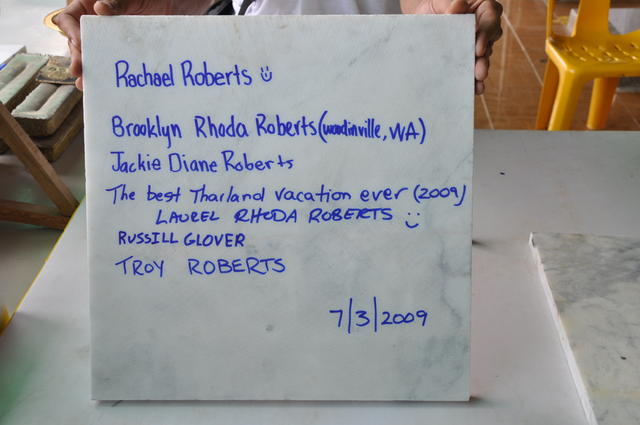 Rachael Roberts
Brooklyn Rhoda Roberts (woodinville, WA)
Jackie Diane Roberts
The best Thailand vacation ever (2009)
LAUREL RHODA ROBERTS
RUSSILL GLOVER
TROY ROBERTS
7/3/2009